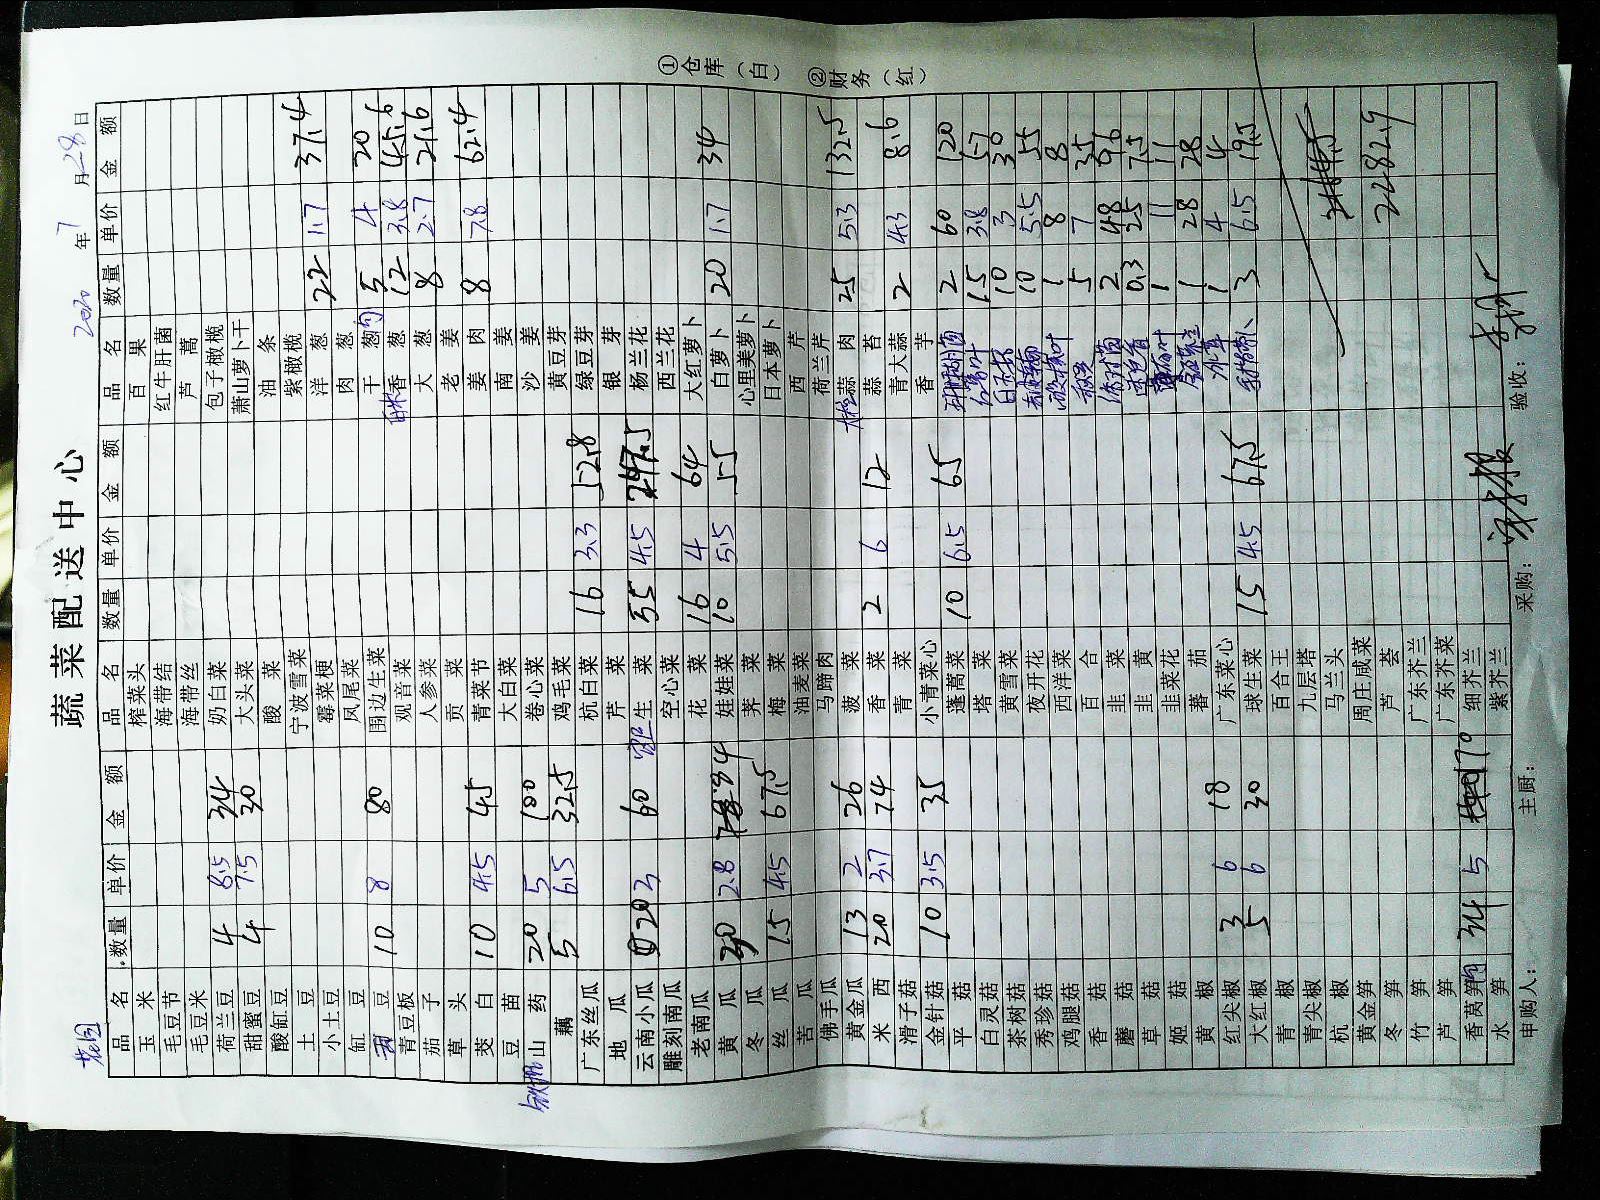 蔬菜配送中心
花园
2020 年 7 月 28 日
品 名 数量 单价 金 额 品 名 数量 单价 金 额 品 名 数量 单价 金 额
玉米 榨菜头 百果
毛豆节 海带结 红牛肝菌
毛豆米 海带丝 芦蒿
荷兰豆 4 8.5 34 奶白菜 包子橄榄
甜蜜豆 4 7.5 30 大头菜 萧山萝卜干
酸缸豆 酸菜 油条
土豆 宁波雪菜 紫橄榄
小土豆 霉菜梗 洋葱 22 1.7 37.4
缸豆 凤尾菜 肉葱
豆 10 8 80 围边生菜 干葱 5 4 20
青豆板 观音菜 香葱 12 3.8 45.6
茄子 人参菜 大葱 8 2.7 21.6
草头 贡菜 老姜
茭白 10 4.5 45 青菜节 姜肉 8 7.8 62.4
豆苗 大白菜 南姜
山药 20 5 100 卷心菜 沙姜
藕 5 6.5 32.5 鸡毛菜 黄豆芽
广东丝瓜 杭白菜 16 3.3 52.8 绿豆芽
地瓜 芹菜 银芽
云南小瓜 20 3 60 生菜 55 4.5 247.5 杨兰花
雕刻南瓜 空心菜 西兰花
老南瓜 花菜 16 4 64 大红萝卜
黄瓜 30 2.8 84 娃娃菜 10 5.5 55 白萝卜 20 1.7 34
冬瓜 荠菜 心里美萝卜
丝瓜 15 4.5 67.5 梅菜 日本萝卜
苦瓜 油麦菜 西芹
佛手瓜 马蹄肉 荷兰芹
黄金瓜 13 2 26 菠菜 蒜肉 25 5.3 132.5
米西 20 3.7 74 香菜 2 6 12 蒜苔
滑子菇 青菜 青大蒜 2 4.3 8.6
金针菇 10 3.5 35 小青菜心 香芋
平菇 蓬蒿菜 10 6.5 65 2 60 120
白灵菇 塔菜 15 3.8 57
茶树菇 黄雪菜 10 3 30
秀珍菇 夜开花 10 5.5 55
鸡腿菇 西洋菜 1 8 8
香菇 百合 5 7 35
蘑菇 韭菜 2 48 96
草菇 韭黄 0.3 25 7.5
姬菇 韭菜花 1 11 11
黄椒 蕃茄 1 28 28
红尖椒 3 6 18 广东菜心 冰草 1 4 4
大红椒 5 6 30 球生菜 15 4.5 67.5 3 6.5 19.5
青椒 百合王
青尖椒 九层塔
杭椒 马兰头
黄金笋 周庄咸菜 2282.9
冬笋 芦荟
竹笋 广东芥兰
芦笋 广东芥菜
香莴笋 34 5 170 细芥兰
水笋 紫芥兰
申购人： 主厨： 采购： 验收：
①仓库（白） ②财务（红）